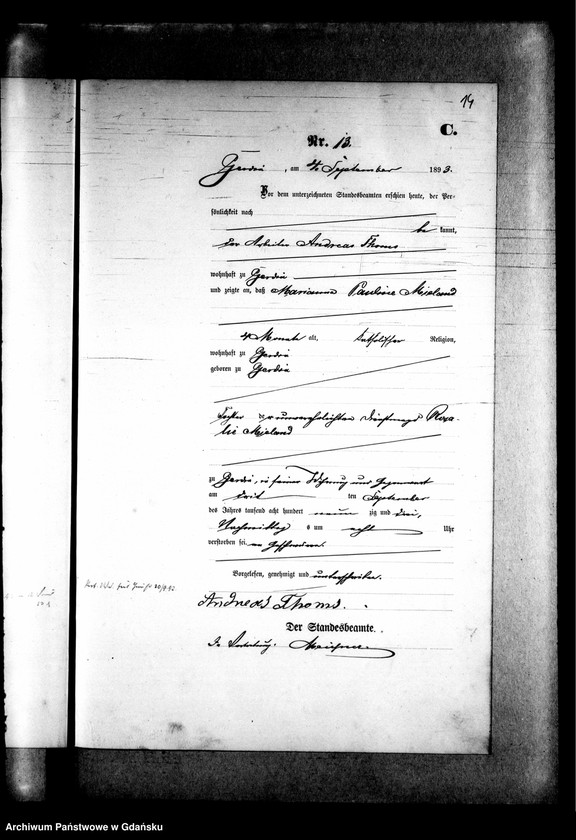 14
C.
Nr. 13.
Gardei, am 4 September 1893.
Vor dem unterzeichneten Standesbeamten erschien heute, der Per-
sönlichkeit nach
be kannt,
der Arbeiter Andreas Thoms
wohnhaft zu Gardei
und zeigte an, daß Marianna Pauline Mieland
4 Monate alt, katholischer Religion,
wohnhaft zu Gardei
geboren zu Gardei
Tochter der unverehelichten Dienstmagd Rosa-
lie Mieland
zu Gardei, in seiner Wohnung und Gegenwart
am drit ten September
des Jahres tausend acht hundert neun zig und drei,
Nachmittag s um acht Uhr
verstorben sei.
Vorgelesen, genehmigt und unterschrieben.
Andreas Thoms.
Der Standesbeamte.
In Vertretung.
Archiwum Państwowe w Gdańsku